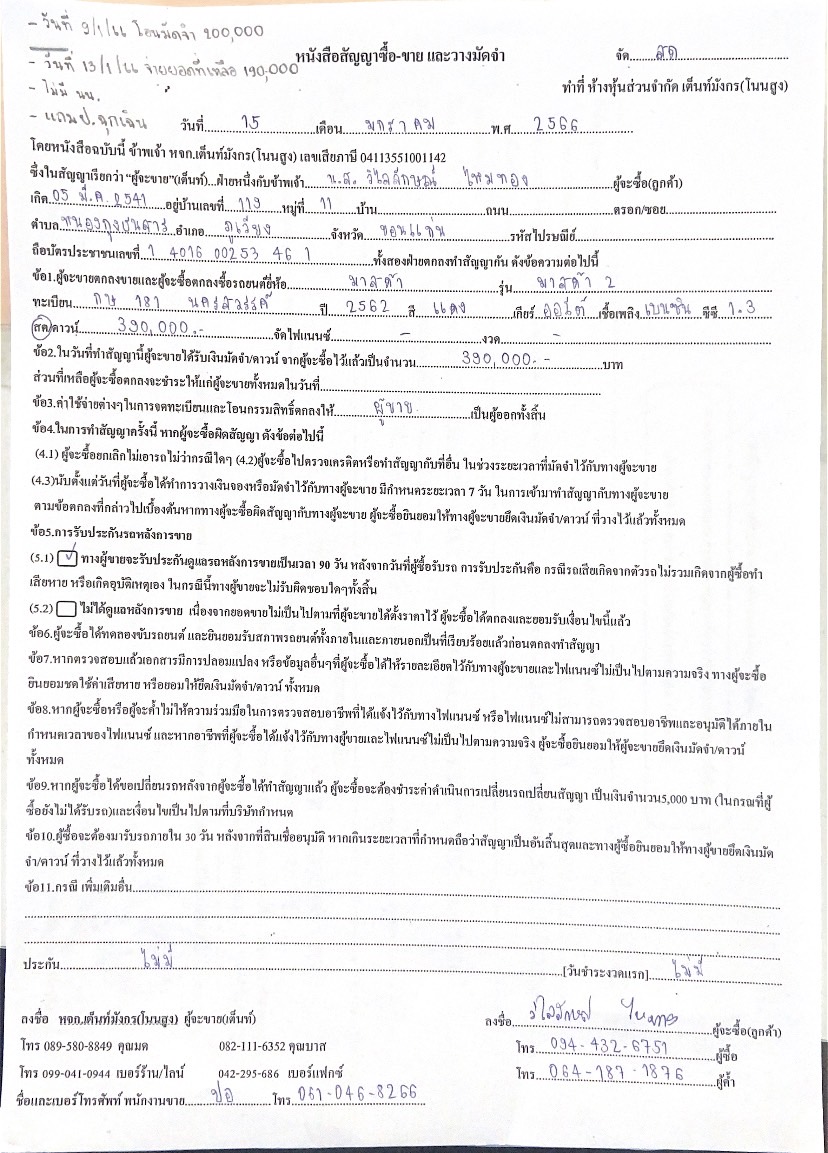 - วันที่ 9/1/66 โอนมัดจำ 200,000
หนังสือสัญญาซื้อ-ขาย และวางมัดจำ
จัด สด
- วันที่ 13/1/66 จ่ายยอดที่เหลือ 190,000
ทำที่ ห้างหุ้นส่วนจำกัด เต็นท์มังกร(โนนสูง)
- ไม่มี นน.
- แถมป.ฉุกเฉิน
วันที่ 15 เดือน มกราคม พ.ศ 2566
โดยหนังสือฉบับนี้ ข้าพเจ้า หจก.เต็นท์มังกร(โนนสูง) เลขเสียภาษี 04113551001142
ซึ่งในสัญญาเรียกว่า "ผู้จะขาย"(เต็นท์)...ฝ่ายหนึ่งกับข้าพเจ้า น.ส. วิไลลักษณ์ ไหมทอง ผู้จะซื้อ(ลูกค้า)
เกิด 05 มี.ค. 2541 อยู่บ้านเลขที่ 119 หมู่ที่ 11 บ้าน ถนน ตรอก/ซอย
ตำบล หนองกุงธนสาร อำเภอ ภูเวียง จังหวัด ขอนแก่น รหัสไปรษณีย์
ถือบัตรประชาชนเลขที่ 1 4016 00253 46 1 ทั้งสองฝ่ายตกลงทำสัญญากัน ดังข้อความต่อไปนี้
ข้อ1.ผู้จะขายตกลงขายและผู้จะซื้อตกลงซื้อรถยนต์ยี่ห้อ มาสด้า รุ่น มาสด้า 2
ทะเบียน กษ 181 นครสวรรค์ ปี 2562 สี แดง เกียร์ ออโต้ เชื้อเพลิง เบนซิน ซีซี 1.3
สด/ดาวน์ 390,000.- จัดไฟแนนซ์ - งวด -
ข้อ2.ในวันที่ทำสัญญานี้ผู้จะขายได้รับเงินมัดจำ/ดาวน์ จากผู้จะซื้อไว้แล้วเป็นจำนวน 390,000.- บาท
ส่วนที่เหลือผู้จะซื้อตกลงจะชำระให้แก่ผู้จะขายทั้งหมดในวันที่
ข้อ3.ค่าใช้จ่ายต่างๆในการจดทะเบียนและโอนกรรมสิทธิ์ตกลงให้ ผู้ขาย เป็นผู้ออกทั้งสิ้น
ข้อ4.ในการทำสัญญาครั้งนี้ หากผู้จะซื้อผิดสัญญา ดังข้อต่อไปนี้
(4.1) ผู้จะซื้อยกเลิกไม่เอารถไม่ว่ากรณีใดๆ (4.2)ผู้จะซื้อไปตรวจเครดิตหรือทำสัญญากับที่อื่น ในช่วงระยะเวลาที่มัดจำไว้กับทางผู้จะขาย
(4.3)นับตั้งแต่วันที่ผู้จะซื้อได้ทำการวางเงินจองหรือมัดจำไว้กับทางผู้จะขาย มีกำหนดระยะเวลา 7 วัน ในการเข้ามาทำสัญญากับทางผู้จะขาย
ตามข้อตกลงที่กล่าวไปเบื้องต้นหากทางผู้จะซื้อผิดสัญญากับทางผู้จะขาย ผู้จะซื้อยินยอมให้ทางผู้จะขายยึดเงินมัดจำ/ดาวน์ ที่วางไว้แล้วทั้งหมด
ข้อ5.การรับประกันรถหลังการขาย
(5.1) ✓ ทางผู้ขายจะรับประกันดูแลรถหลังการขายเป็นเวลา 90 วัน หลังจากวันที่ผู้ซื้อรับรถ การรับประกันคือ กรณีรถเสียเกิดจากตัวรถไม่รวมเกิดจากผู้ซื้อทำ
เสียหาย หรือเกิดอุบัติเหตุเอง ในกรณีนี้ทางผู้ขายจะไม่รับผิดชอบใดๆทั้งสิ้น
(5.2) ไม่ได้ดูแลหลังการขาย เนื่องจากยอดขายไม่เป็นไปตามที่ผู้จะขายได้ตั้งราคาไว้ ผู้จะซื้อได้ตกลงและยอมรับเงื่อนไขนี้แล้ว
ข้อ6.ผู้จะซื้อได้ทดลองขับรถยนต์ และยินยอมรับสภาพรถยนต์ทั้งภายในและภายนอกเป็นที่เรียบร้อยแล้วก่อนตกลงทำสัญญา
ข้อ7.หากตรวจสอบแล้วเอกสารมีการปลอมแปลง หรือข้อมูลอื่นๆที่ผู้จะซื้อได้ให้รายละเอียดไว้กับทางผู้จะขายและไฟแนนซ์ไม่เป็นไปตามความจริง ทางผู้จะซื้อ
ยินยอมชดใช้ค่าเสียหาย หรือยอมให้ยึดเงินมัดจำ/ดาวน์ ทั้งหมด
ข้อ8.หากผู้จะซื้อหรือผู้จะค้ำไม่ให้ความร่วมมือในการตรวจสอบอาชีพที่ได้แจ้งไว้กับทางไฟแนนซ์ หรือไฟแนนซ์ไม่สามารถตรวจสอบอาชีพและอนุมัติได้ภายใน
กำหนดเวลาของไฟแนนซ์ และหากอาชีพที่ผู้จะซื้อได้แจ้งไว้กับทางผู้ขายและไฟแนนซ์ไม่เป็นไปตามความจริง ผู้จะซื้อยินยอมให้ผู้จะขายยึดเงินมัดจำ/ดาวน์
ทั้งหมด
ข้อ9.หากผู้จะซื้อได้ขอเปลี่ยนรถหลังจากผู้จะซื้อได้ทำสัญญาแล้ว ผู้จะซื้อจะต้องชำระค่าดำเนินการเปลี่ยนรถเปลี่ยนสัญญา เป็นเงินจำนวน5,000 บาท (ในกรณที่ผู้
ซื้อยังไม่ได้รับรถ)และเงื่อนไขเป็นไปตามที่บริษัทกำหนด
ข้อ10.ผู้ซื้อจะต้องมารับรถภายใน 30 วัน หลังจากที่สินเชื่ออนุมัติ หากเกินระยะเวลาที่กำหนดถือว่าสัญญาเป็นอันสิ้นสุดและทางผู้ซื้อยินยอมให้ทางผู้ขายยึดเงินมัด
จำ/ดาวน์ ที่วางไว้แล้วทั้งหมด
ข้อ11.กรณี เพิ่มเติมอื่น
ประกัน ไม่มี [วันชำระงวดแรก] ไม่มี
ลงชื่อ หจก.เต็นท์มังกร(โนนสูง) ผู้จะขาย(เต็นท์)
ลงชื่อ วิไลลักษณ์ ไหมทอง ผู้จะซื้อ(ลูกค้า)
โทร 089-580-8849 คุณมด 082-111-6352 คุณบาส
โทร 094-432-6751 ผู้ซื้อ
โทร 099-041-0944 เบอร์ร้าน/ไลน์ 042-295-686 เบอร์แฟกซ์
โทร 064-187-1876 ผู้ค้ำ
ชื่อและเบอร์โทรศัพท์ พนักงานขาย ปอ โทร 061-046-8266